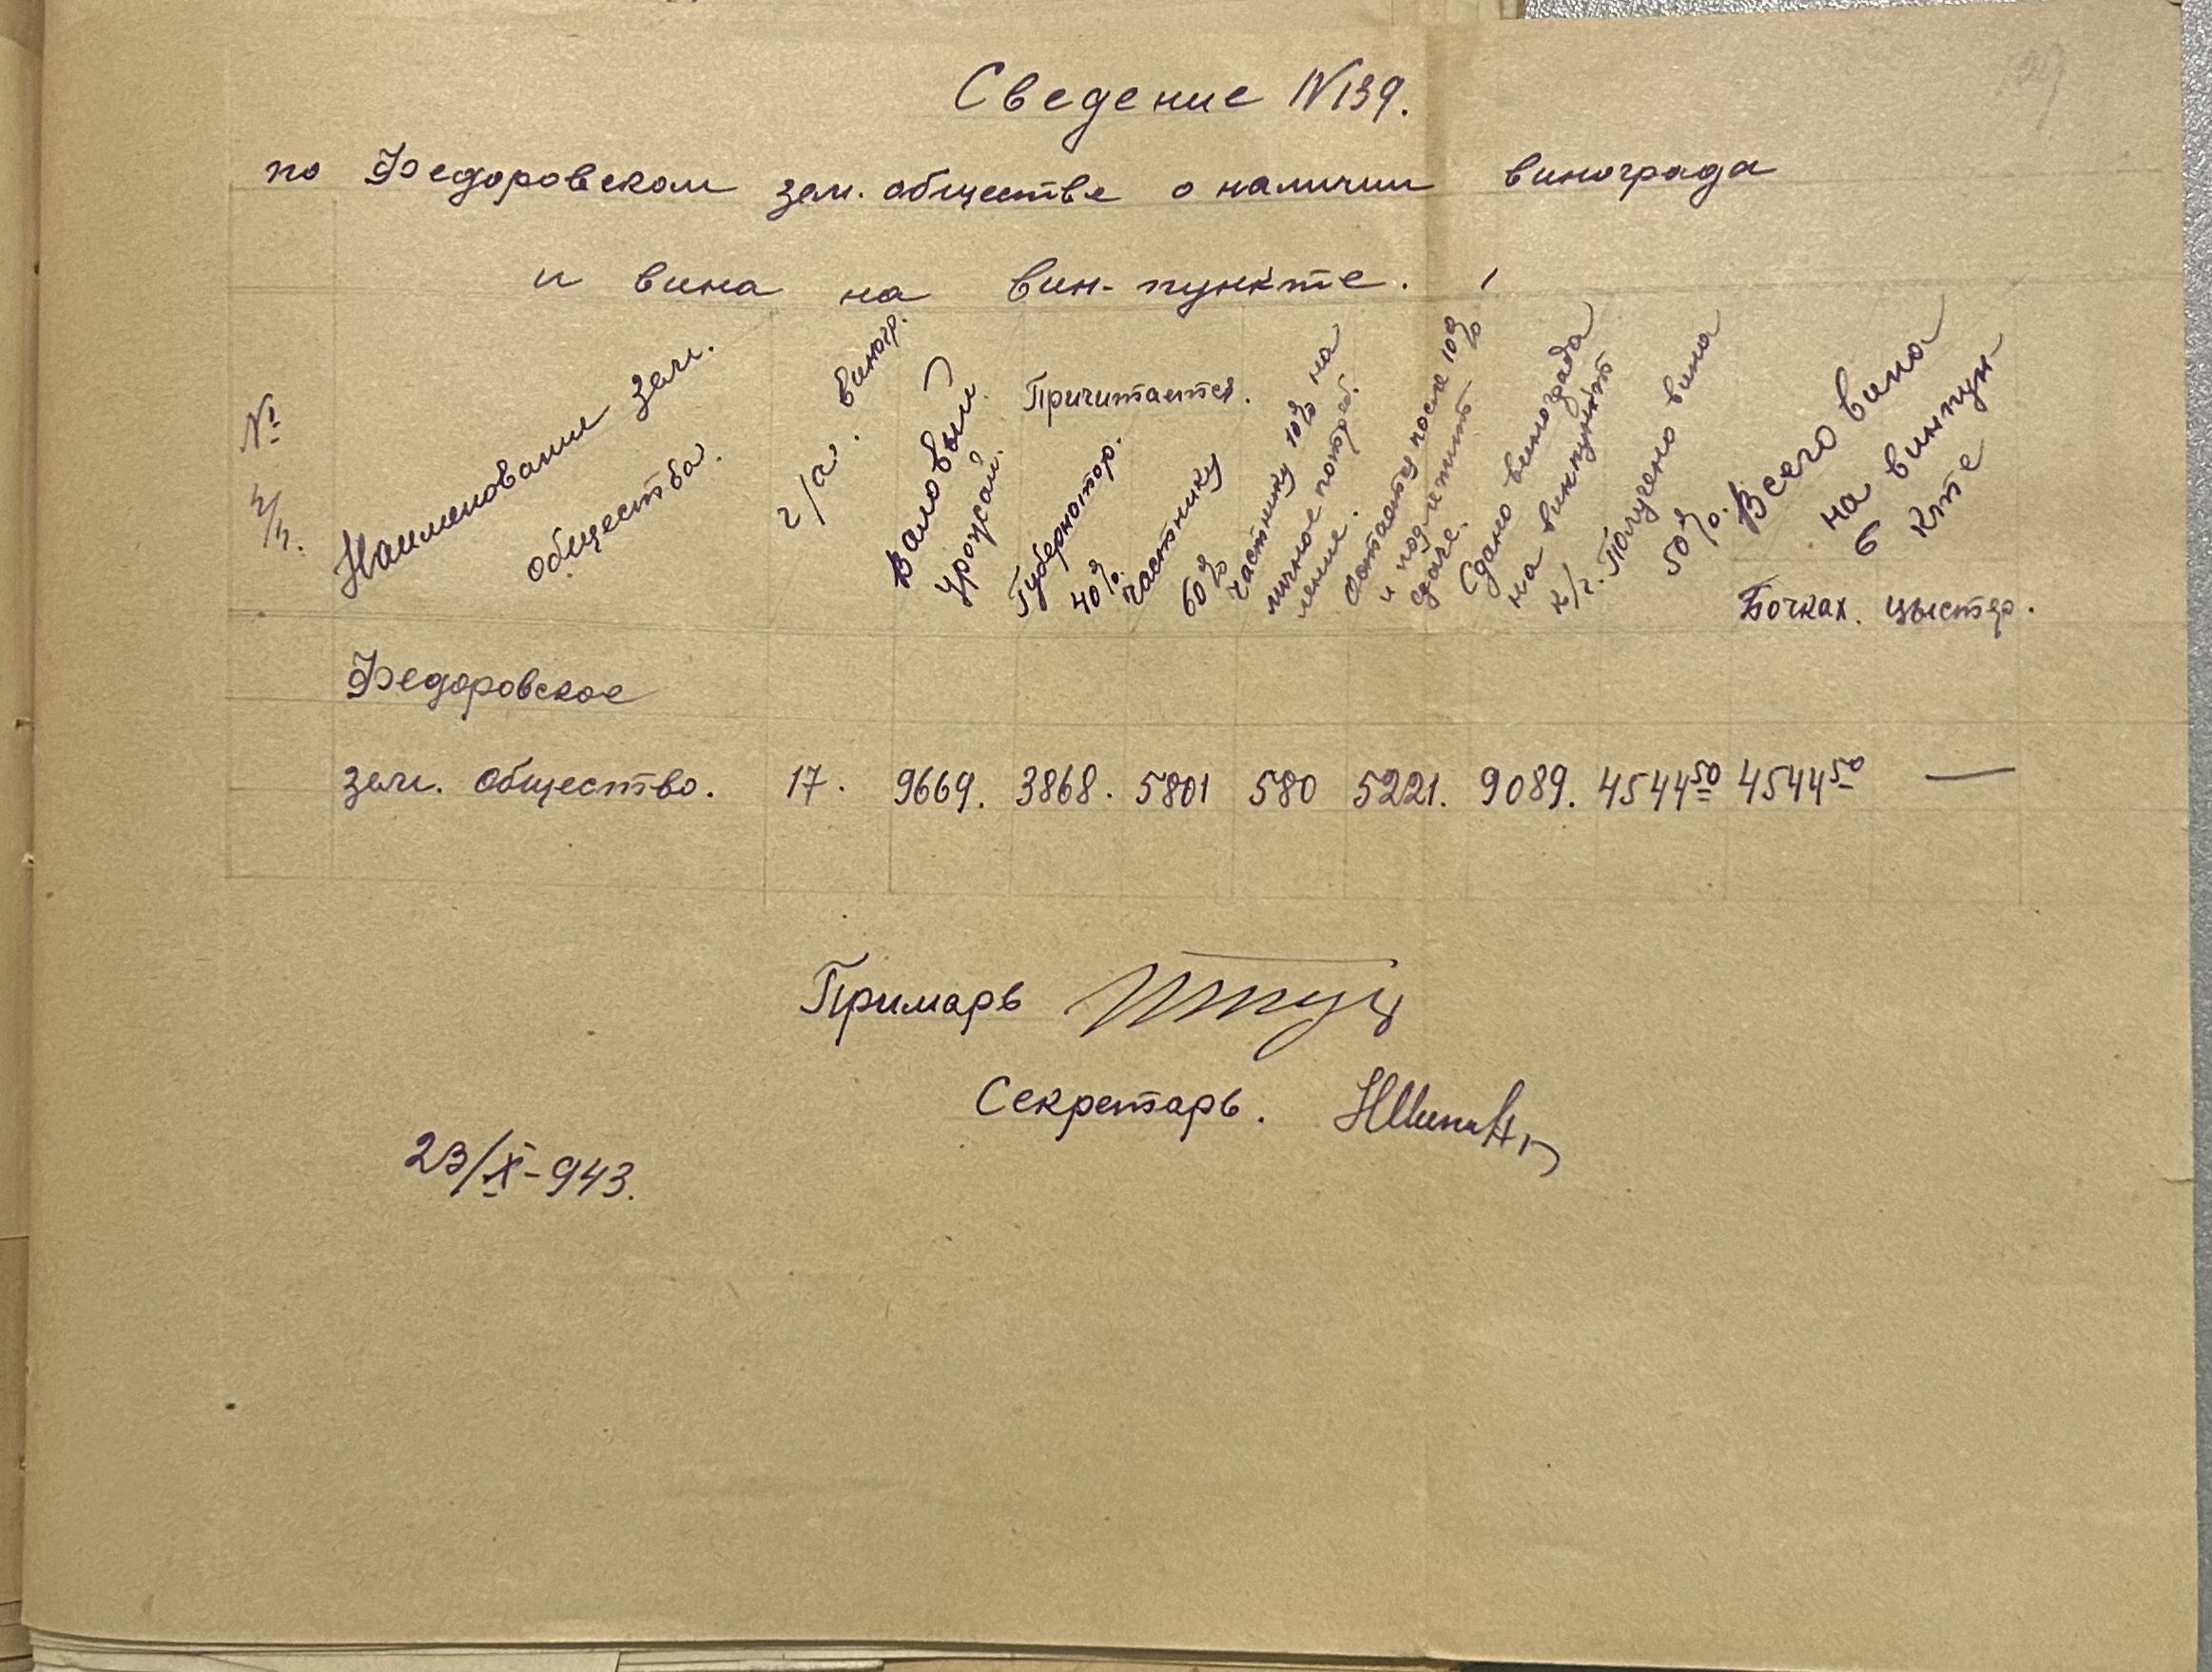 Сведение №139.
по Федоровском зем. обществе о наличии винограда
и вина на вин-пункте.
№
п/п.
Наименование зем.
общества.
г/а. виногр.
Валовый
урожай.
Причитается.
Губернатор.
40%.
частнику
60%
частнику 10% на
личное потреб
ление.
Остаетцу после 10%
и подлежит
сдаче.
Сдано винограда
на винпункт
к/г.
Получено вина
50%.
Всего вина
на винпун-
кте
в
Бочках. цыстер.
Федоровское
зем. общество. 17. 9669. 3868. 5801 580 5221. 9089. 4544 50 4544 50 —
Примарь
Секретарь.
23/X-943.